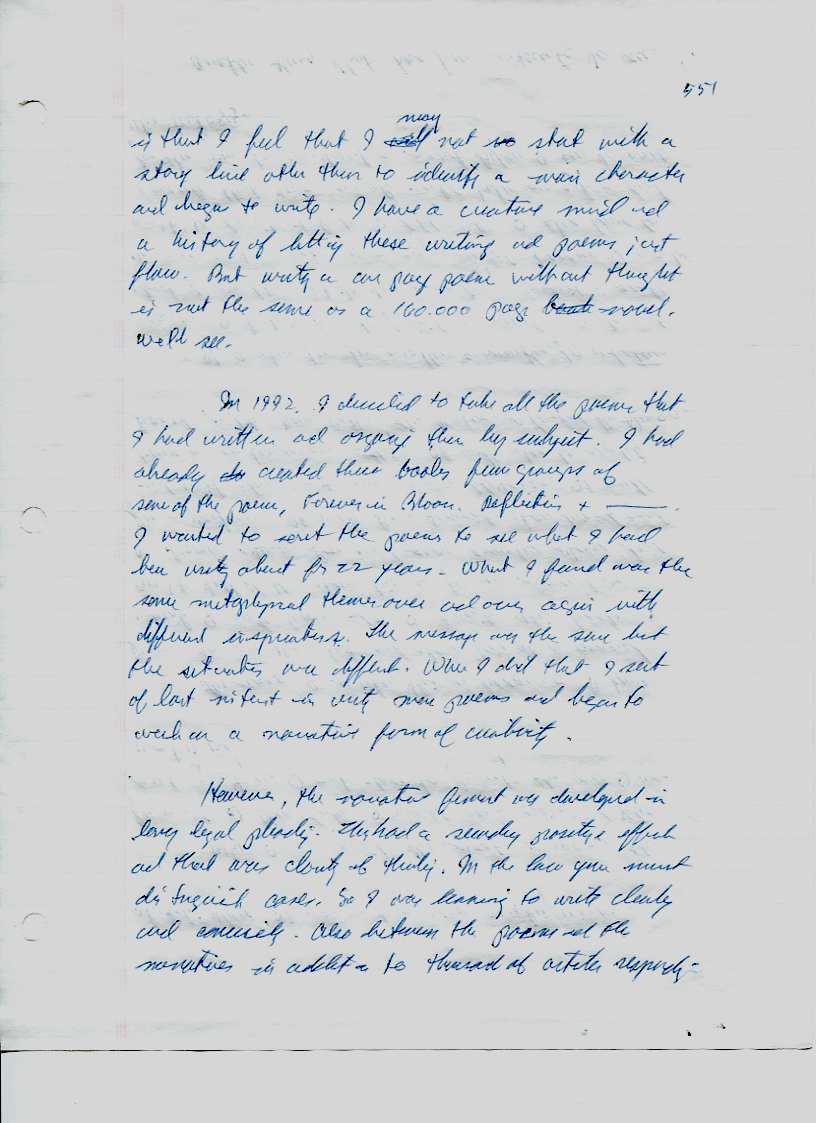 551
may
is that I feel that I will not so start with a
story line other then to identify a main character
and began to write. I have a creative mind and
a history of letting these writing and poems just
flow. But writing a one page poem without thought
is not the same as a 160.000 page book novel.
we'll see.
In 1992, I decided to take all the poems that
I had written and organize them by subject. I had
already do created three books from groups of
some of the poem, Forever in Bloom. Reflection +
I wanted to sort the poems to see what I had
been writing about for 22 years. What I found was the
same metaphysical themes over and over again with
different inspirations. The message was the same but
the situations were different. When I did that I sort
of lost interest in writing more poems and began to
work on a narrative form of creativity.
However, the narrative format was developed in
long legal pleading. They had a secondary positive effect
and that was clarity of thinking. In the law you must
distinguish cases. So I was learning to write clearly
and concisely. Also between the poems and the
narratives in addition to thousand of articles responding